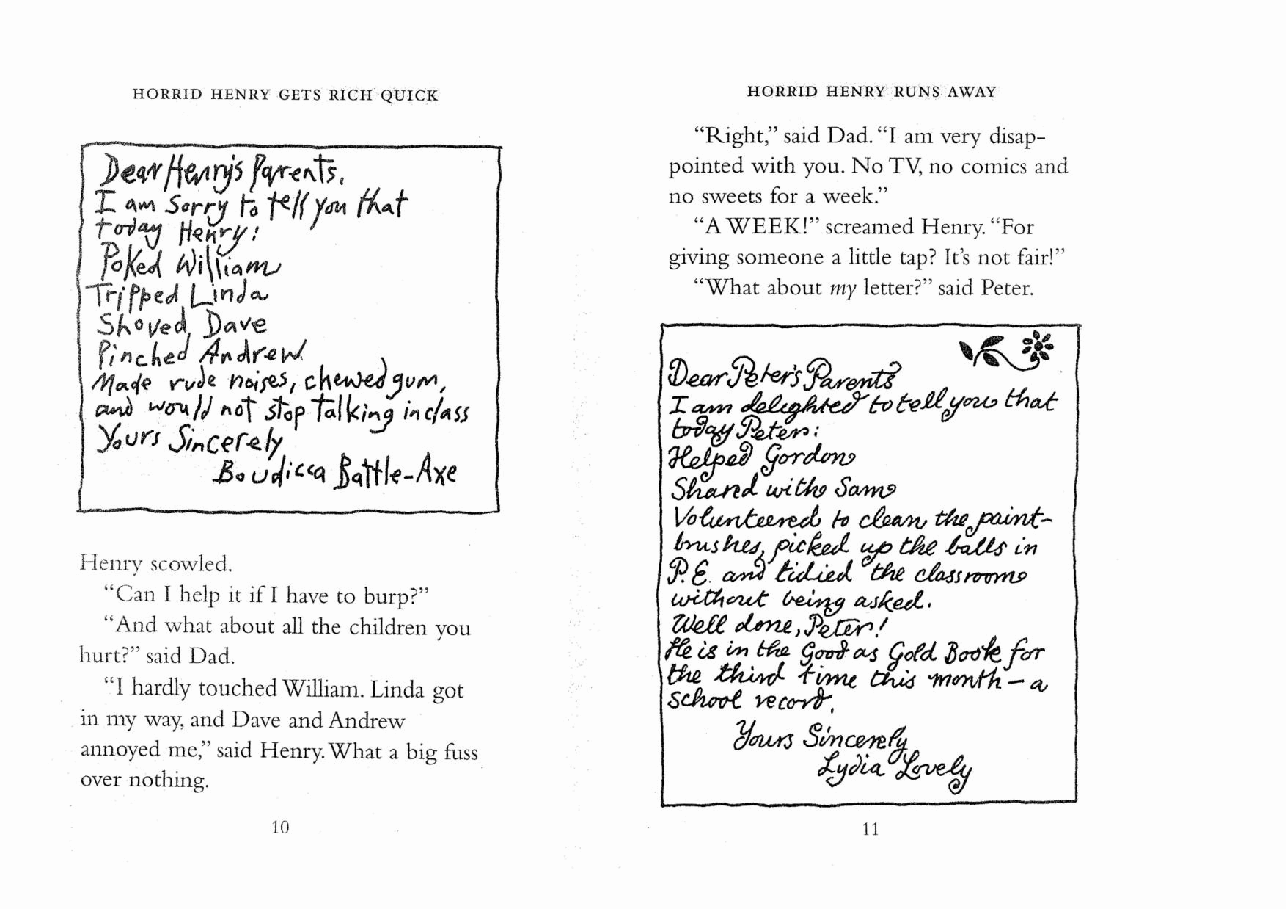 HORRID HENRY GETS RICH QUICK
Dear Henry's Parents,
I am Sorry to tell you that
today Henry:
Poked William
Tripped Linda
Shoved Dave
Pinched Andrew
Made rude noises, chewed gum,
and would not stop talking in class
Yours Sincerely
Boudicca Battle-Axe
Henry scowled.
“Can I help it if I have to burp?”
“And what about all the children you
hurt?” said Dad.
“I hardly touched William. Linda got
in my way, and Dave and Andrew
annoyed me,” said Henry. What a big fuss
over nothing.
10
HORRID HENRY RUNS AWAY
“Right,” said Dad. “I am very disap-
pointed with you. No TV, no comics and
no sweets for a week.”
“A WEEK!” screamed Henry. “For
giving someone a little tap? It’s not fair!”
“What about my letter?” said Peter.
Dear Peter's Parents
I am delighted to tell you that
today Peter:
Helped Gordon
Shared with Sam
Volunteered to clean the paint-
brushes, picked up the balls in
P.E. and tidied the classroom
without being asked.
Well done, Peter!
He is in the Good as Gold Book for
the third time this month – a
school record.
Yours Sincerely
Lydia Lovely
11